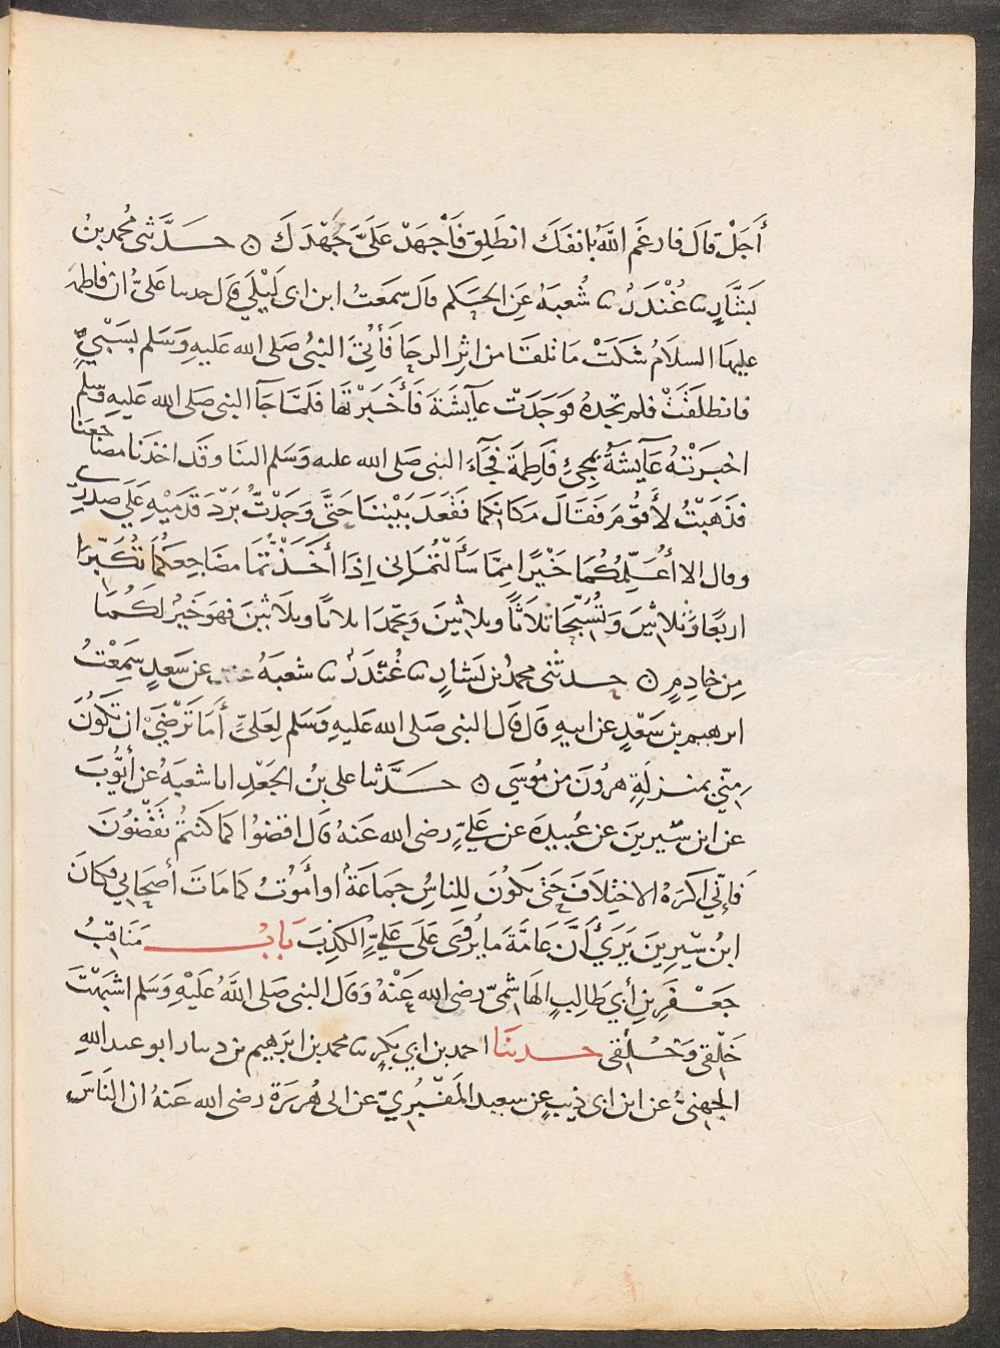 أَجَلْ قَالَ فارغَم اللَّهُ بانفَكَ انطَلِق فَاجْهَدْ عَلَيَّ جَهْدَكَ ۞ حَدَّثني مُحمد بنُ
بَشَّارٍ سا غُنْدَرُ سا شُعبَهُ عَنِ الحَكم قال سَمَعتُ ابن ابى لَيْلَي قال حدسا عَليٌّ ان فاطمَة
عليهَا السلامُ شَكَتْ مَا تلقَا من اثر الرحَا فَأُتِيَ النبيُ صَلى الله عَليهِ وَسَلم بسَبْيٍ
فانطلَقَتْ فلم تجدهُ فوَجَدَت عآيشَةَ فَأَخبَرَتْهَا فلمَّا جَآ النبى صَلى الله عَليهِ وسلم
اخبَرَتْهُ عَآيشَةُ بمجئِ فَاطِمَةَ فجَآءَ النبى صَلى الله عليه وَسَلم الينَا وقَد اخذنَا مضاجعَنا
فذَهَبْتُ لأَقوُمَ فَقَالَ مَكَانكما فقَعَدَ بَيْننَا حَتَّى وَجَدْتُ بَرْدَ قَدَمَيْهِ عَلَي صدرِي
وقال الا أُعَلِّمُكُمَا خَيْرًا مِمَّا سَأَلْتُمَانى اِذَا أَخَذْتُمَا مضَاجِعَكُمَا تُكَبِّرَا
اربَعًا وَثلاثينَ وَتُسَبِّحَا ثلاَثاً وثلاثينَ وَتحمَدَا ثلاثًا وثلاَثينَ فهوَ خَيرٌ لَكُمَا
مِن خادِمٍ ۞ حدثنى محمدُ بن بَشارٍ سا غُنْدَرٌ سا شعبَهُ عن سَعدٍ سَمِعْتُ
ابرهيم بن سَعْدٍ عن ابيهِ قَال قَال النبى صَلى الله عَليهِ وَسَلم لِعَليٍّ أَمَا تَرْضَيَ ان تَكُونَ
مِنّي بمنزلَةِ هرُونَ من مُوسَي ۞ حَدَّثنا على بنُ الجَعْدِ انا شعبَهُ عَن أيُّوبَ
عن ابن سيرينَ عن عُبيدَة عن عَليٍّ رضى الله عَنهُ قَال اقضوُا كمَا كنتمُ تَقْضُونَ
فَإنّي اكرَهُ الاختِلاَفَ حَتى يَكوُنَ لِلناسِ جَمَاعَةٌ او أَمُوْتُ كمَا مَاتَ أَصحَابي وكَانَ
ابنُ سِيْرِينَ يَرَيْ أَنَّ عَامَّةَ ما يُروَى عَلَى عَليٍّ الكَذِبَ بَابُ مَنَاقبُ
جَعْفَرِ بنِ أَبي طَالِبٍ الهَاشمىّ رضى الله عَنْهُ وَقَال النبى صَلى اللَّهُ عَلَيْهِ وَسَلم اشبَهْتَ
خَلْقى وَخُلُقى حدثنَا احمد بن ابي بَكرٍ سا محمد بن ابرَهيم بن دينار ابو عبد اللهِ
الجهَنىُّ عن ابن ابى ذيبٍ عن سعيد المَقبُرِيّ عن ابى هُريرَة رضى الله عَنهُ ان النَاسَ